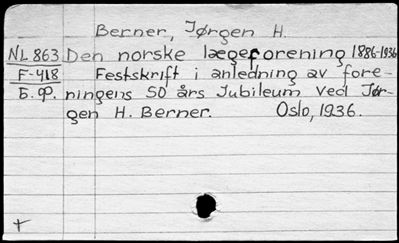 Berner, Jørgen H.
NL 863 Den norske lægeforening 1886-1936
F-418 Festskrift i anledning av fore-
Б.Ф. ningens 50 års Jubileum ved Jør-
gen H. Berner. Oslo, 1936.
+